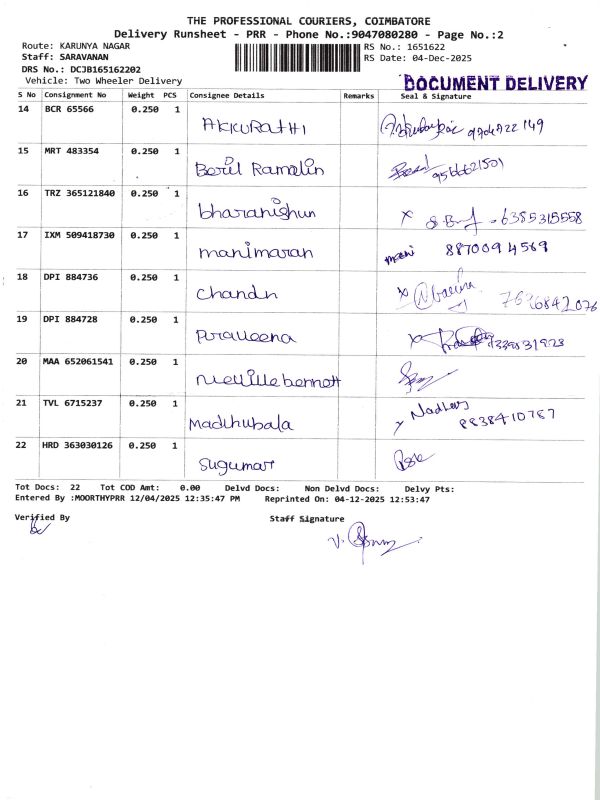 THE PROFESSIONAL COURIERS, COIMBATORE
Delivery Runsheet - PRR - Phone No.:9047080280 - Page No.:2
Route: KARUNYA NAGAR
RS No.: 1651622
Staff: SARAVANAN
RS Date: 04-Dec-2025
DRS No.: DCJB165162202
Vehicle: Two Wheeler Delivery
DOCUMENT DELIVERY
S No Consignment No Weight PCS Consignee Details Remarks Seal & Signature
14 BCR 65566 0.250 1 AKKURATHI
15 MRT 483354 0.250 1 Beril Ramelin 9566621501
16 TRZ 365121840 0.250 1 bharanishun x 6385315558
17 IXM 509418730 0.250 1 manimaran mani 8870094569
18 DPI 884736 0.250 1 chandn x 7626842076
19 DPI 884728 0.250 1 praveena x
20 MAA 652061541 0.250 1 nevillebennett
21 TVL 6715237 0.250 1 Madhubala 8838410787
22 HRD 363030126 0.250 1 sugumar
Tot Docs: 22 Tot COD Amt: 0.00 Delvd Docs: Non Delvd Docs: Delvy Pts:
Entered By :MOORTHYPRR 12/04/2025 12:35:47 PM Reprinted On: 04-12-2025 12:53:47
Verified By Staff Signature